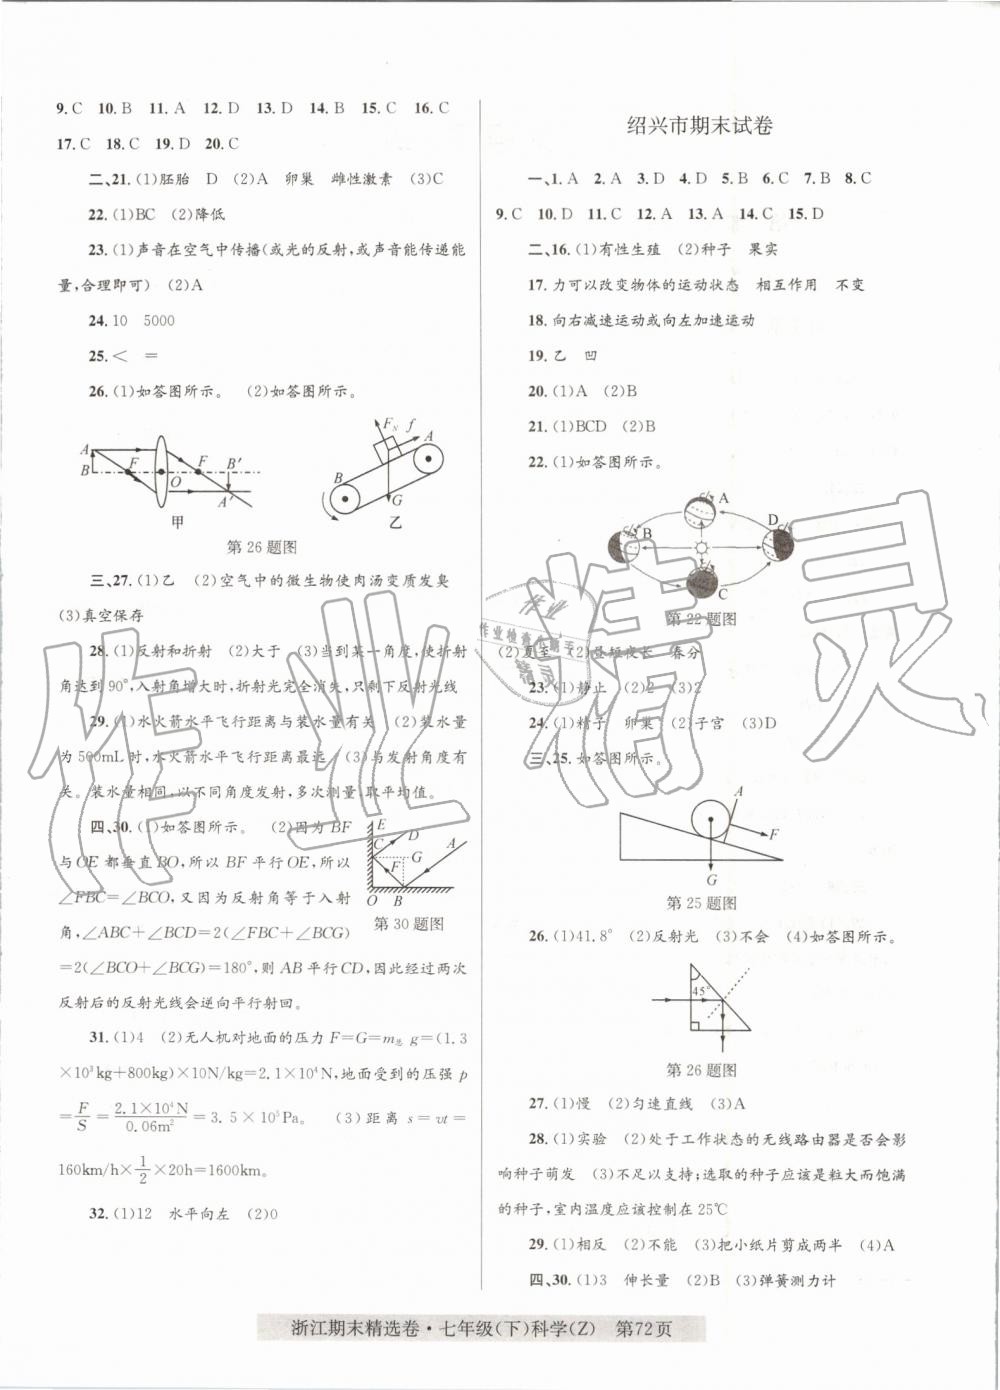 9. C  10. B  11. A  12. D  13. D  14. B  15. C  16. C
17. C  18. C  19. D  20. C
二、21. (1)胚胎  D  (2)A  卵巢  雌性激素  (3)C
22. (1)BC  (2)降低
23. (1)声音在空气中传播(或光的反射,或声音能传递能
量,合理即可)  (2)A
24. 10  5000
25. <  =
26. (1)如答图所示。  (2)如答图所示。
A
B
F
O
F
B′
A′
甲
F_N
f
A
B
G
乙
第 26 题图
三、27. (1)乙  (2)空气中的微生物使肉汤变质发臭
(3)真空保存
28. (1)反射和折射  (2)大于  (3)当到某一角度,使折射
角达到 90°,入射角增大时,折射光完全消失,只剩下反射光线
29. (1)水火箭水平飞行距离与装水量有关  (2)装水量
为 500mL 时,水火箭水平飞行距离最远  (3)与发射角度有
关。装水量相同,以不同角度发射,多次测量,取平均值。
四、30. (1)如答图所示。  (2)因为 BF
与 OE 都垂直 BO,所以 BF 平行 OE,所以
∠FBC=∠BCO,又因为反射角等于入射
角,∠ABC+∠BCD=2(∠FBC+∠BCG)
=2(∠BCO+∠BCG)=180°,则 AB 平行 CD,因此经过两次
反射后的反射光线会逆向平行射回。
E
D
A
C
G
F
O
B
第 30 题图
31. (1)4  (2)无人机对地面的压力 F=G=m总 g=(1.3
×10³kg+800kg)×10N/kg=2.1×10⁴N,地面受到的压强 p
=F/S=2.1×10⁴N/0.06m²=3.5×10⁵Pa。  (3)距离 s=vt=
160km/h×1/2×20h=1600km。
32. (1)12  水平向左  (2)0
绍兴市期末试卷
一、1. A  2. A  3. D  4. D  5. B  6. C  7. B  8. C
9. C  10. D  11. C  12. A  13. A  14. C  15. D
二、16. (1)有性生殖  (2)种子  果实
17. 力可以改变物体的运动状态  相互作用  不变
18. 向右减速运动或向左加速运动
19. 乙  凹
20. (1)A  (2)B
21. (1)BCD  (2)B
22. (1)如答图所示。
A
B
D
C
第 22 题图
(2)夏至  (2)昼短夜长  春分
23. (1)静止  (2)2  (3)2
24. (1)精子  卵巢  (2)子宫  (3)D
三、25. 如答图所示。
A
F
G
第 25 题图
26. (1)41.8°  (2)反射光  (3)不会  (4)如答图所示。
45°
第 26 题图
27. (1)慢  (2)匀速直线  (3)A
28. (1)实验  (2)处于工作状态的无线路由器是否会影
响种子萌发  (3)不足以支持;选取的种子应该是粒大而饱满
的种子,室内温度应该控制在 25℃
29. (1)相反  (2)不能  (3)把小纸片剪成两半  (4)A
四、30. (1)3  伸长量  (2)B  (3)弹簧测力计
浙江期末精选卷·七年级(下)科学(Z)  第72页
作业精灵
作业
作业检查小助手
精灵